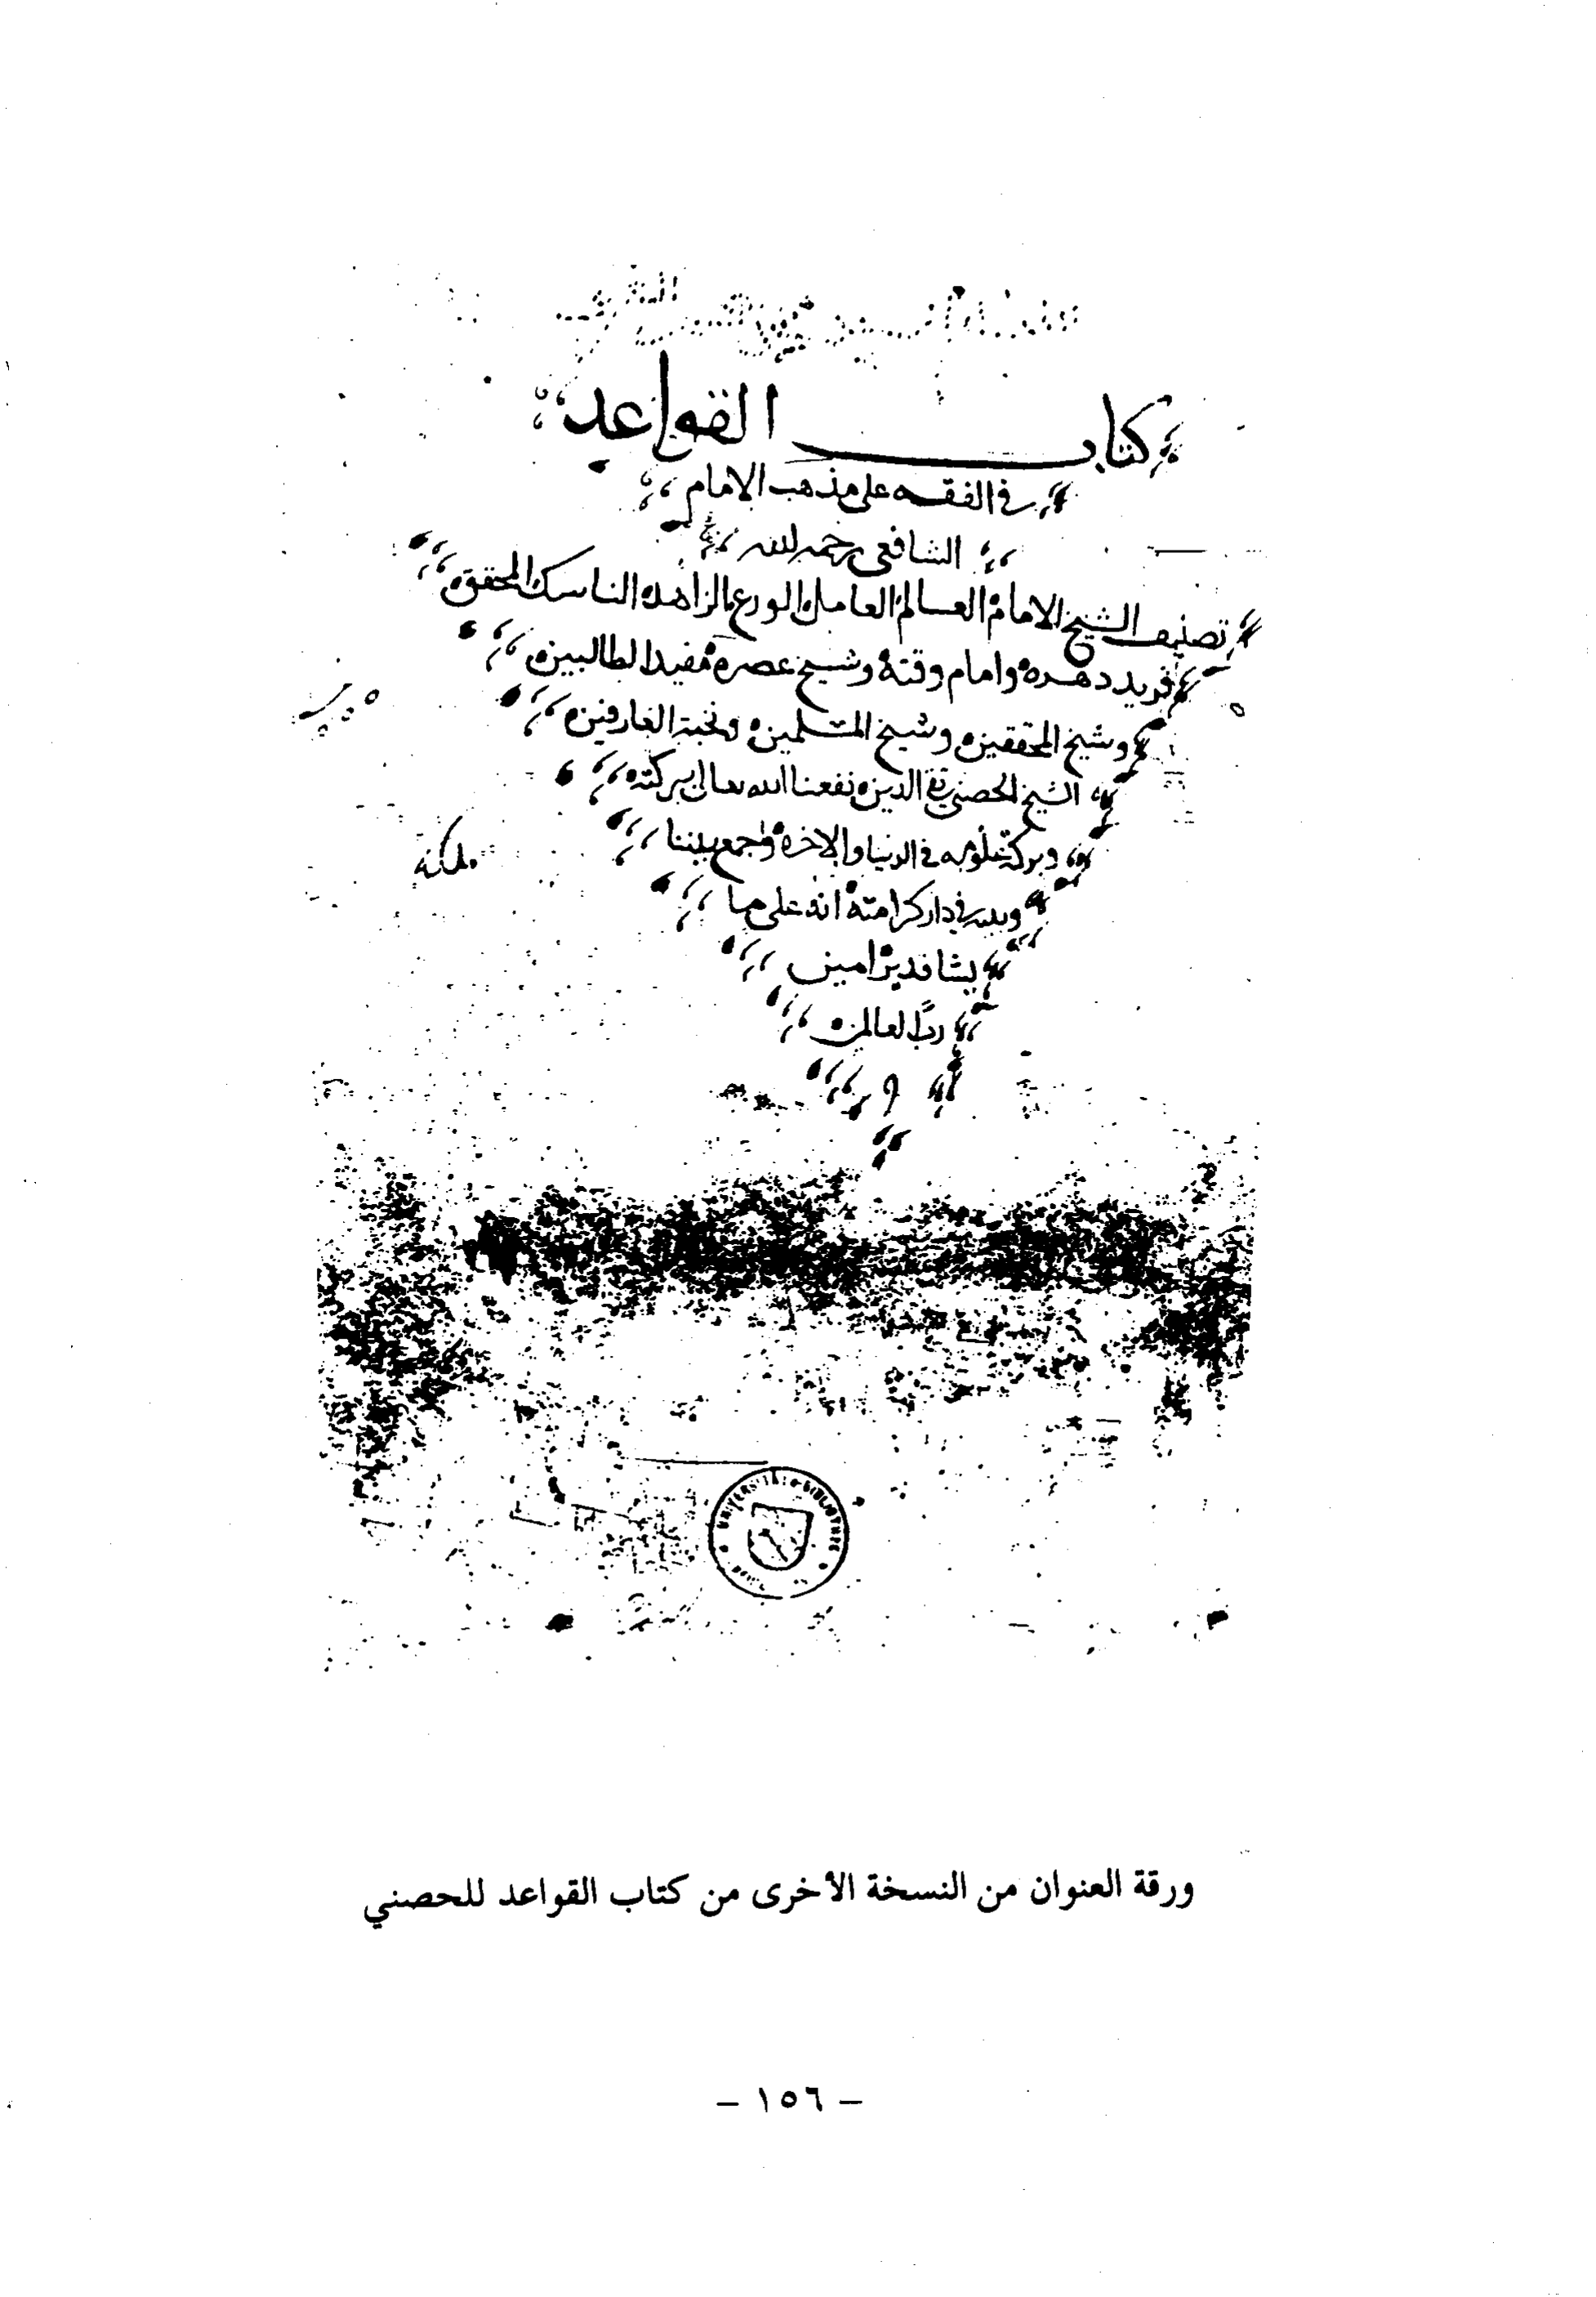 كتاب القواعد
في الفقه على مذهب الامام
الشافعي رحمه الله
تصنيف الشيخ الامام العالم العامل الورع الزاهد الناسك المحقق
فريد دهره وامام وقته وشيخ عصره مفيد الطالبين
وشيخ المحققين وشيخ المسلمين ونخبة العارفين
الشيخ الحصني تقي الدين نفعنا الله تعالى ببركته
وبركة علومه في الدنيا والاخرة وجمع بيننا
وبينه في دار كرامته انه على ما
يشا قدير امين
رب العالمين
ورقة العنوان من النسخة الأخرى من كتاب القواعد للحصني
- ١٥٦ -